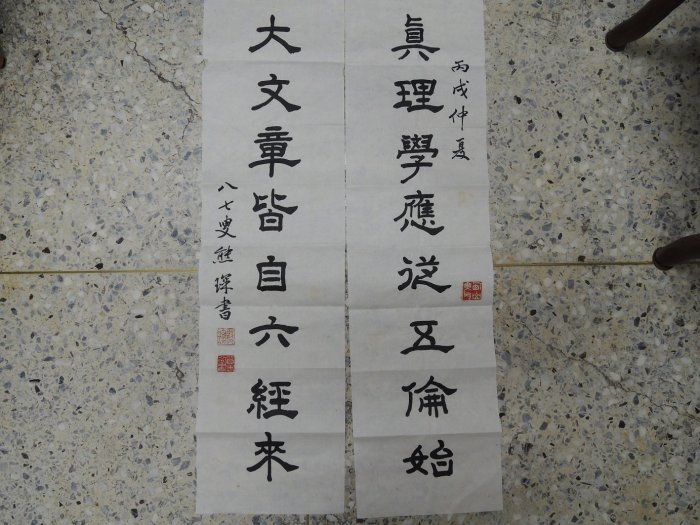 真理學應從五倫始
丙戌仲夏
大文章皆自六經來
八七叟熊琛書